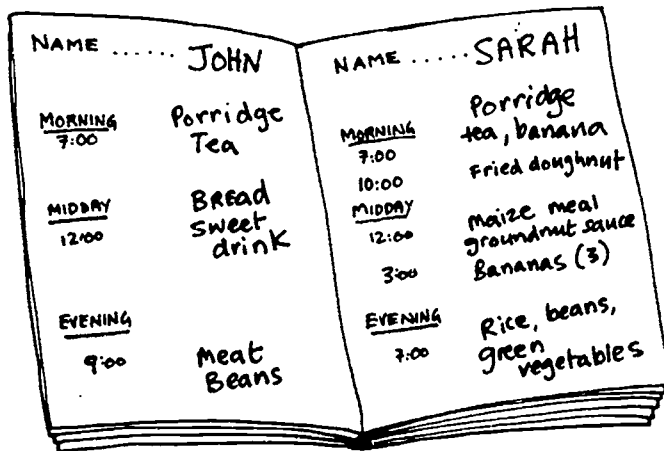 NAME ...... JOHN
MORNING
7:00
Porridge
Tea
MIDDAY
12:00
BREAD
sweet
drink
EVENING
9:00
Meat
Beans
NAME ..... SARAH
MORNING
7:00
Porridge
tea, banana
10:00
Fried doughnut
MIDDAY
12:00
maize meal
groundnut sauce
3:00
Bananas (3)
EVENING
7:00
Rice, beans,
green
vegetables